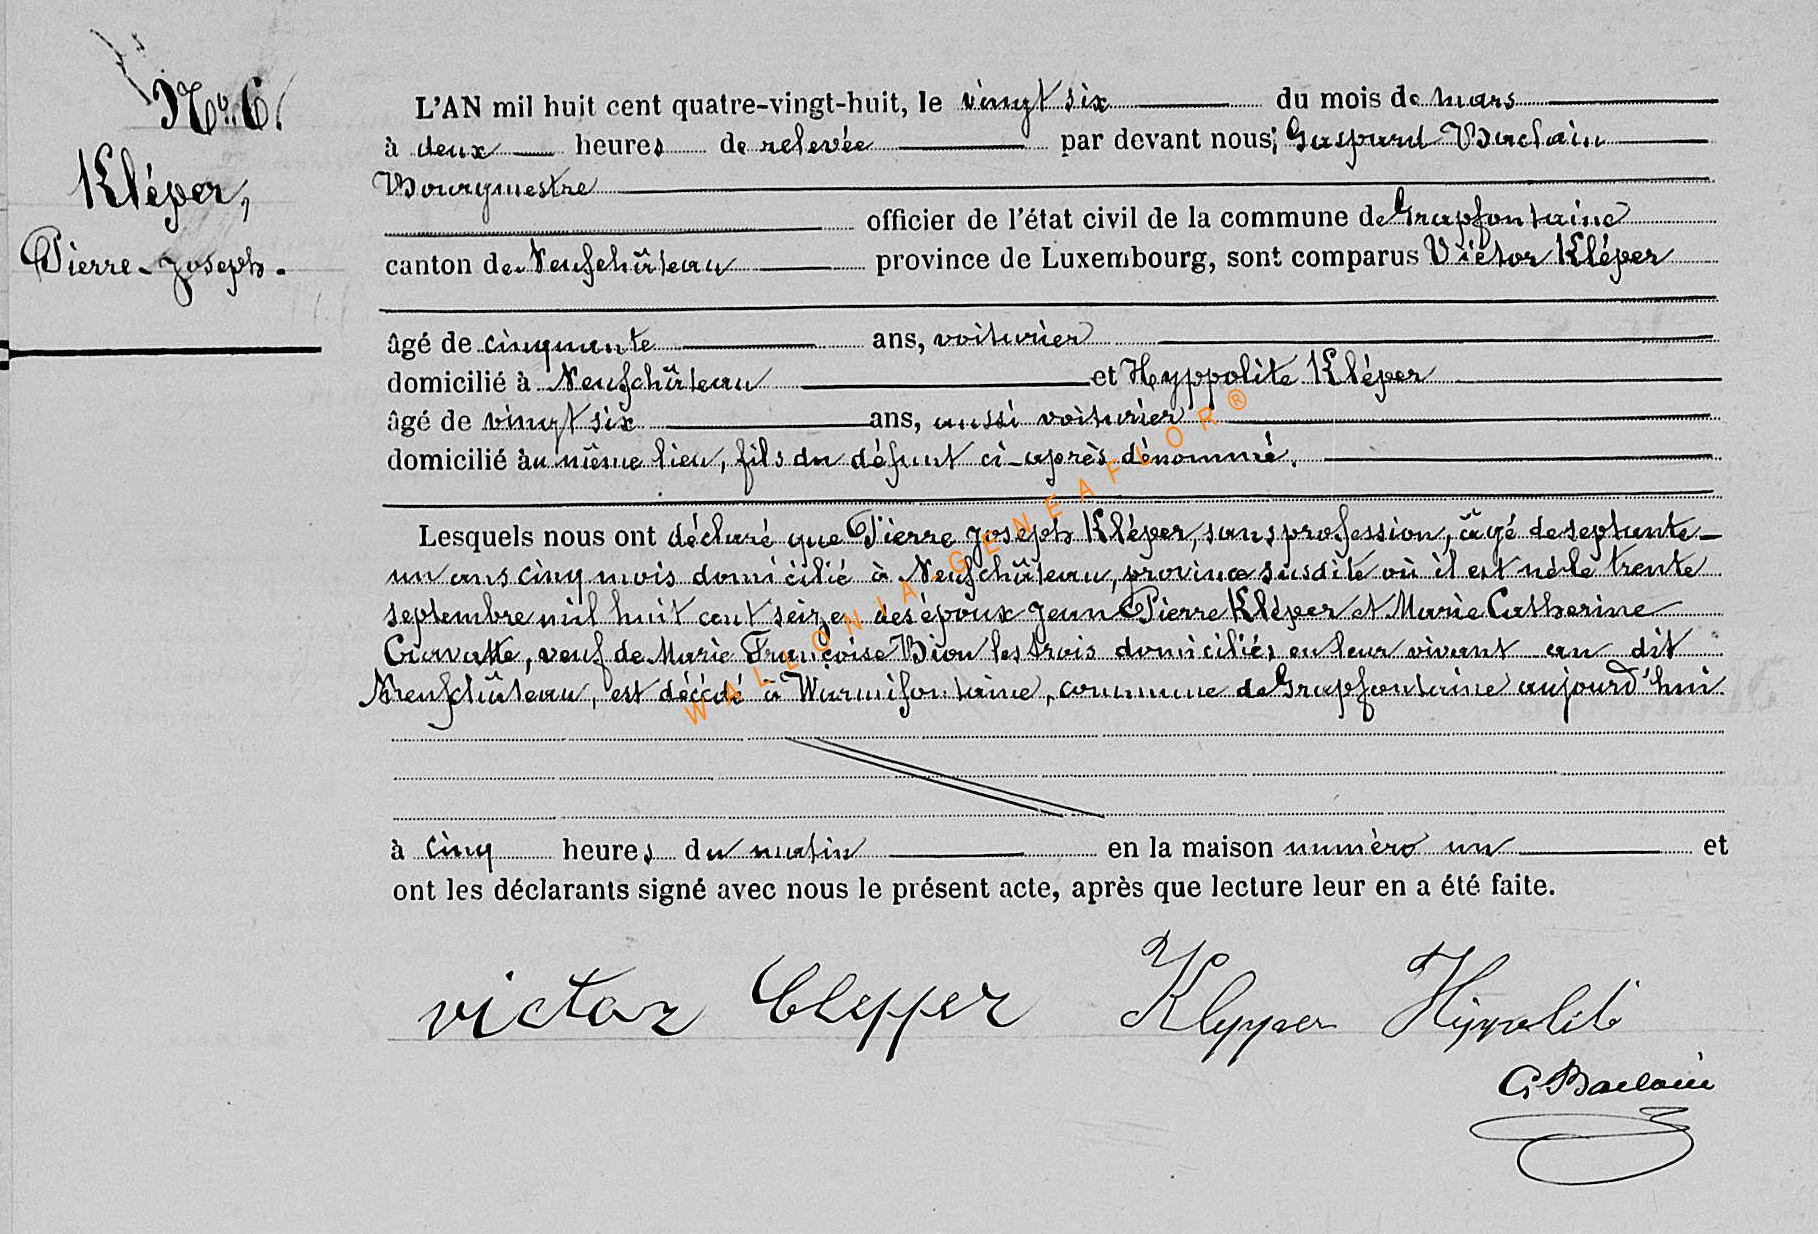 No. 6.
Kléper,
Pierre-Joseph.
L'AN mil huit cent quatre-vingt-huit, le vingt six du mois de mars
à deux heures de relevée par devant nous, Gaspard Baclain
Bourgmestre
officier de l'état civil de la commune de Grapfontaine
canton de Neufchâteau province de Luxembourg, sont comparus Victor Kléper
âgé de cinquante ans, voiturier
domicilié à Neufchâteau et Hyppolite Kléper
âgé de vingt six ans, aussi voiturier
domicilié au même lieu, fils du défunt ci-après dénommé.
Lesquels nous ont déclaré que Pierre Joseph Kléper, sans profession, âgé de septante-
un ans cinq mois domicilié à Neufchâteau, province susdite où il est né le trente
septembre mil huit cent seize, des époux Jean Pierre Kléper et Marie Catherine
Cravatte, veuf de Marie Françoise Bion les trois domiciliés en leur vivant au dit
Neufchâteau, est décédé à Warmifontaine, commune de Grapfontaine aujourd'hui
à cinq heures du matin en la maison numéro un et
ont les déclarants signé avec nous le présent acte, après que lecture leur en a été faite.
victor Clepper Klepper Hippolite
G. Baclain
WALLONIA-GENEAFLOR®